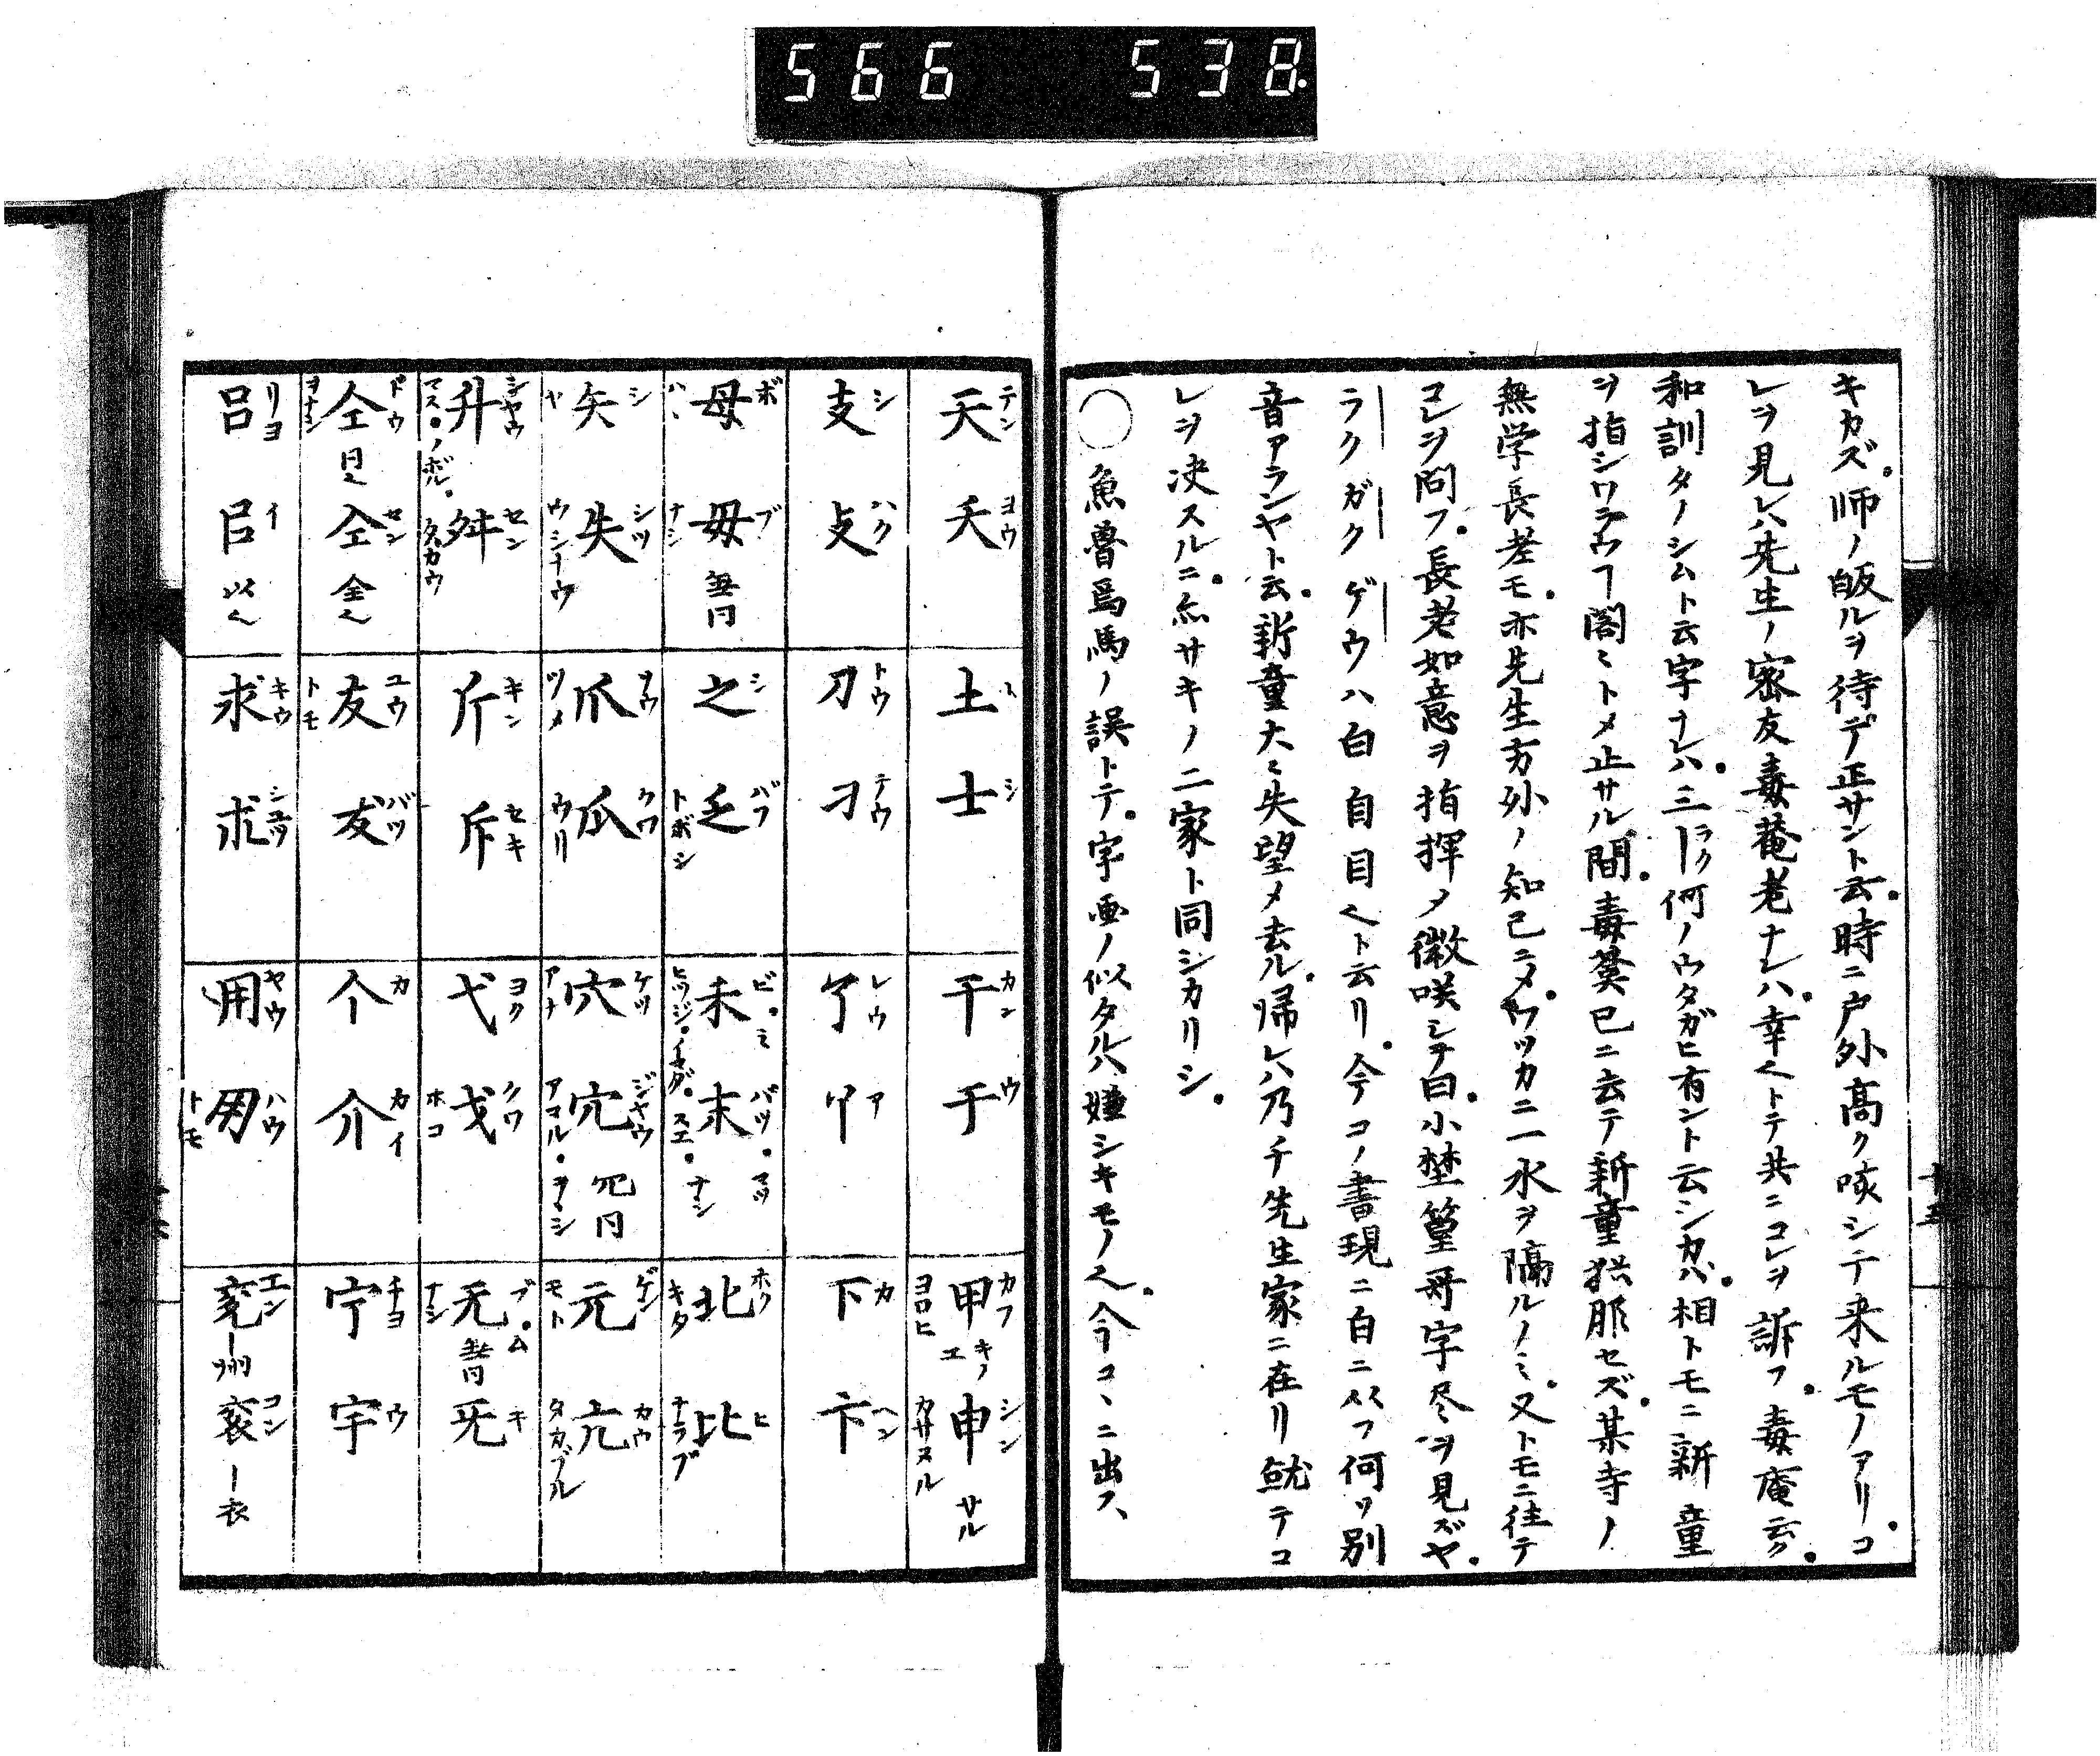 566 538.
キカズ。師ノ皈ルヲ待テ正サント云。時ニ戸外高ク咳シテ来ルモノアリ。コ
レヲ見レハ先生ノ密友毒菴老ナレハ。幸ヘトテ共ニコレヲ訴フ。毒庵云ク。
和訓タノシムト云字ナレハ。三ーラク何ノウタガヒ有ント云シカハ。相トモニ新童
ヲ指シワラウフ閣ミトメ止サル間。毒菴已ニ去テ新童拱服セズ。某寺ノ
無学長老モ。亦先生方外ノ知己ニメ。ワツカニ一水ヲ隔ルノミ。又トモニ往テ
コレヲ問フ。長老如意ヲ指揮メ微咲シテ曰。小埜篁哥字尽ヲ見ズヤ。
ラクガクゲウハ白自目ヘト云リ。今コノ書現ニ白ニ从フ何ソ別
音アランヤト云。新童大ニ失望メ去ル。帰レハ乃チ先生家ニ在リ就テコ
レヲ决スルニ。亦サキノ二家ト同シカリシ。
○魚魯焉馬ノ誤トテ。字画ノ似タルハ嫌シキモノヘ。今コヽニ出ス、
十五
天テン 夭ヨウ 土ト 士シ 干カン 于ウ 甲カフ キノエ ヨロヒ 申シン サル カサスル
支シ 攴ハク 刀トウ 刁テウ 了レウ 丫ア 下カ 卞ヘン
母ボ ハヽ 毋ブ ナシ 無同 之シ 乏バフ トボシ 未ビ。ミ ヒツジ・イマダ。 末バツ。マツ スエ・ナシ 北ホク キタ 比ヒ ナラブ
矢シ ヤ 失シツ ウシナウ 爪サウ ツメ 瓜クワ ウリ 穴ケツ アナ 宂ジヤウ アマル・ヲヽシ 冗同 元ゲン モト 亢カウ タカブル
升シヤウ マス・ノボル。 舛セン タカウ 斤キン 斥セキ 弋ヨク 戈クワ ホコ 无ブ。ム ナシ 無同 旡キ
仝ドウ ヲナシ 同ヘ 仝セン 全ヘ 友ユウ トモ 犮バツ 个カ 介カイ 宁チヨ 宇ウ
呂リヨ 㠯イ 以ヘ 求キウ 朮シユツ 用ヤウ 甪ハウ トモ 兗エン ー州 衮コン ー衣